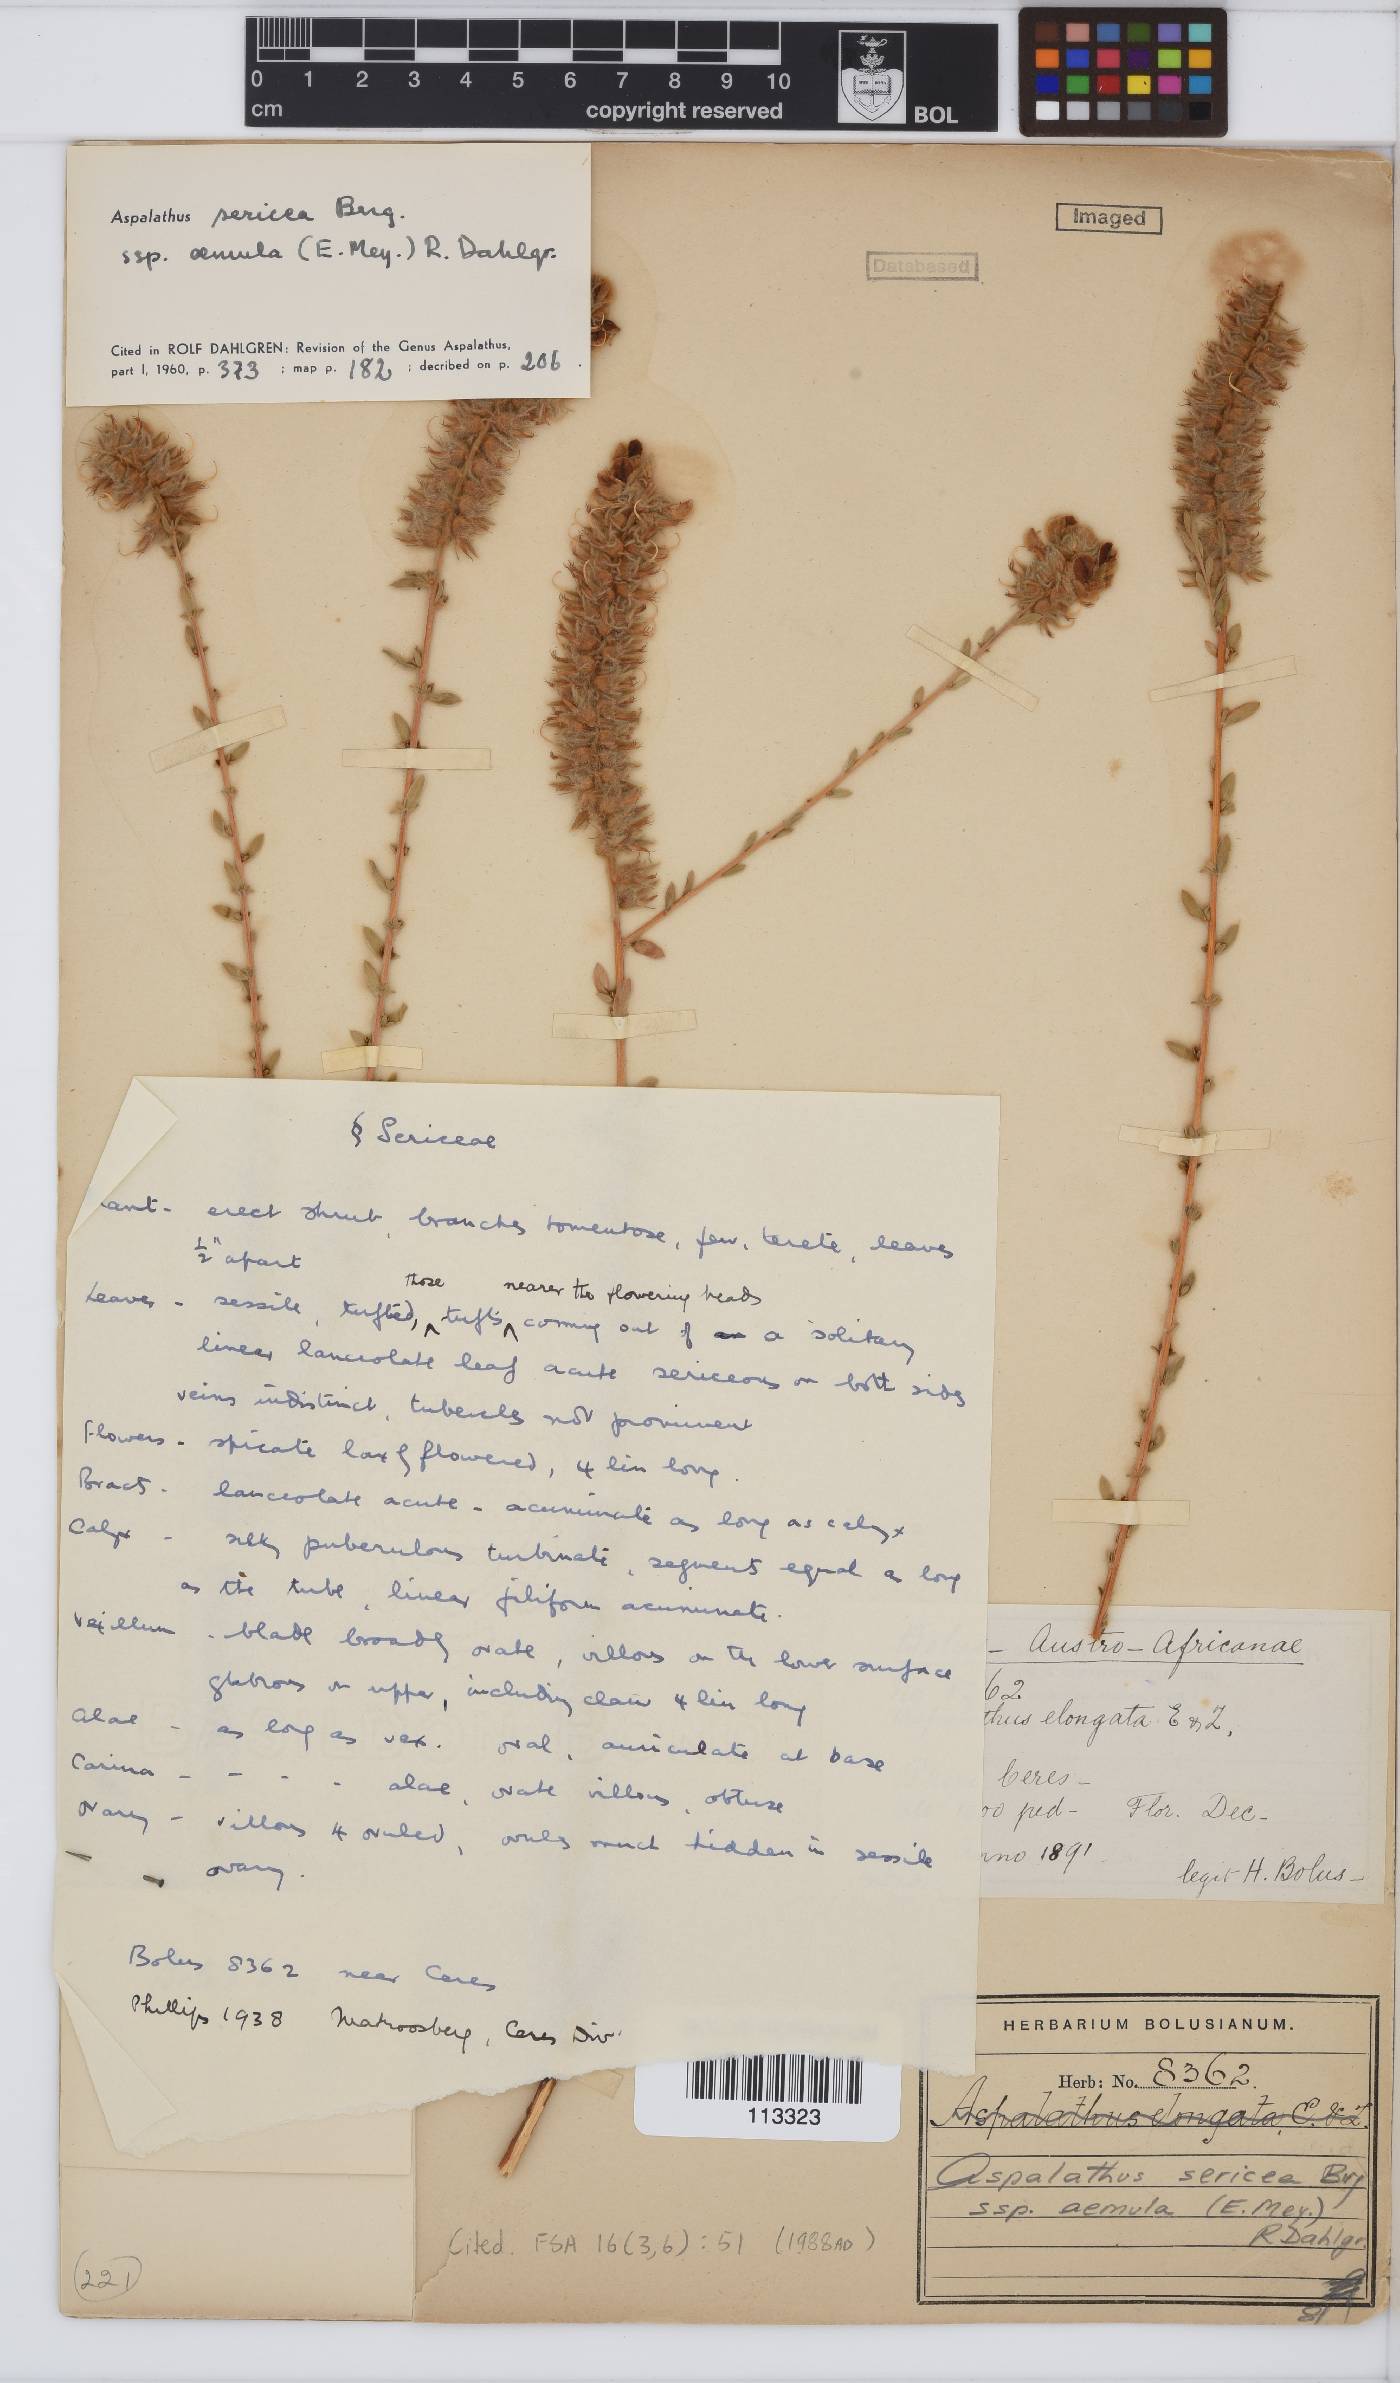 0 1 2 3 4 5 6 7 8 9 10
cm
copyright reserved
BOL
Aspalathus sericea Berg.
ssp. æmula (E. Mey.) R. Dahlgr.
Cited in ROLF DAHLGREN: Revision of the Genus Aspalathus,
part I, 1960, p. 373 ; map p. 182 ; decribed on p. 206 .
Imaged
Databased
§ Sericeae
lant - erect shrub, branches tomentose, few, terete, leaves
½" apart
those nearer the flowering heads
Leaves - sessile, tufted, tufts coming out of a solitary
linear lanceolate leaf acute sericeous on both sides
veins indistinct, tubercles not prominent
Flowers - spicate laxly flowered, 4 lin long.
Bract - lanceolate acute - acuminate as long as calyx
Calyx - silky puberulous turbinate, segments equal as long
as the tube, linear filiform acuminate.
Vexillum - blade broadly ovate, villous on the lower surface
glabrous on upper, including claw 4 lin long
Alae - as long as vex. oval, auriculate at base
Carina - - - - alae, ovate villous, obtuse
Ovary - villous 4 ovuled, ovules much hidden in sessile
ovary.
Bolus 8362 near Ceres
Phillips 1938 Matroosberg, Ceres Div.
– Austro – Africanae
62
thus elongata E & Z,
Ceres –
00 ped – Flor. Dec –
nno 1891
legit H. Bolus –
113323
HERBARIUM BOLUSIANUM.
Herb: No. 8362.
Aspalathus elongata, E. & Z.
Aspalathus sericea Berg
ssp. aemula (E. Mey.)
R Dahlgr.
Cited. FSA 16(3,6) : 51 (1988 AD)
(221)